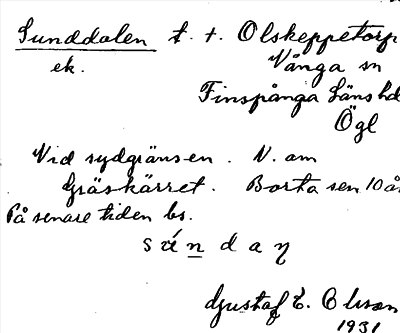 Sunddalen t. t. Olskeppetorp
ek. Vånga sn
Finspånga Läns hd
Ögl
Vid sydgränsen. V. am
Gräskärret. Borta sen 10 år
På senare tiden bs.
Gustaf E. Olsson
1931